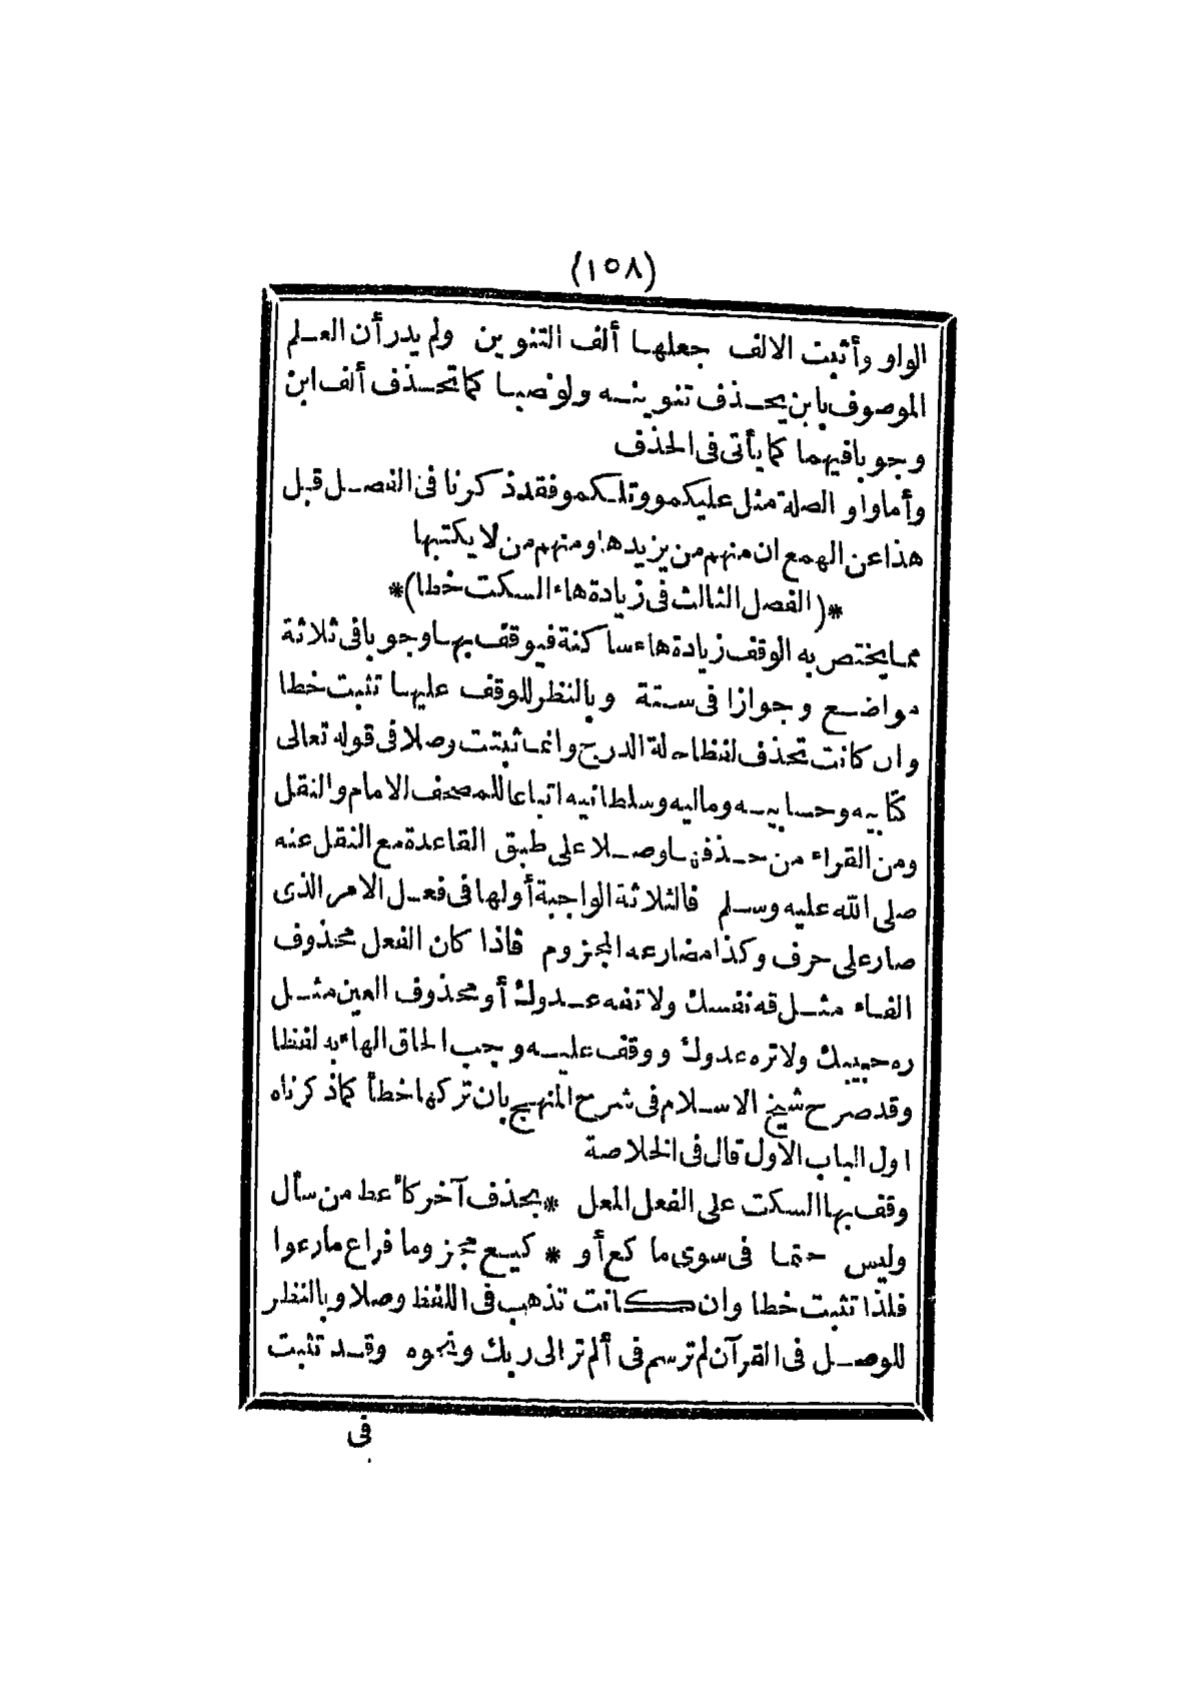 (١٥٨)
الواو وأثبت الالف جعلها ألف التنوين ولم يدر أن العلم
الموصوف بابن يحذف تنوينه ولو نصبا كما تحذف ألف ابن
وجوبا فيهما كما يأتى فى الحذف
وأما واو الصلة مثل عليكمو وتلكمو فقد ذكرنا فى الفصل قبل
هذا عن الهمع ان منهم من يزيدها ومنهم من لا يكتبها
*(الفصل الثالث فى زيادة هاء السكت خطا)*
مما يختص به الوقف زيادة هاء ساكنة فيوقف بها وجوبا فى ثلاثة
مواضع وجوازا فى ستة وبالنظر للوقف عليها تثبت خطا
وان كانت تحذف لفظا حالة الدرج وانما ثبتت وصلا فى قوله تعالى
كتابيه وحسابيه وماليه وسلطانيه اتباعا للمصحف الامام والنقل
ومن القراء من حذفها وصلا على طبق القاعدة مع النقل عنه
صلى الله عليه وسلم فالثلاثة الواجبة أولها فى فعل الامر الذى
صار على حرف وكذا مضارعه المجزوم فاذا كان الفعل محذوف
الفاء مثل قه نفسك ولا تقه عدوك أو محذوف العين مثل
ره حبيبك ولا تره عدوك ووقف عليه وجب الحاق الهاء به لفظا
وقد صرح شيخ الاسلام فى شرح المنهج بان تركها خطأ كما ذكرناه
اول الباب الاول قال فى الخلاصة
وقف بها السكت على الفعل المعل * بحذف آخر كأعط من سأل
وليس حتما فى سوى ما كع أو * كيع مجزوما فراع مارعوا
فلذا تثبت خطا وان كانت تذهب فى اللفظ وصلا وبالنظر
للوصل فى القرآن لم ترسم فى ألم تر الى ربك ونحوه وقد تثبت
فى